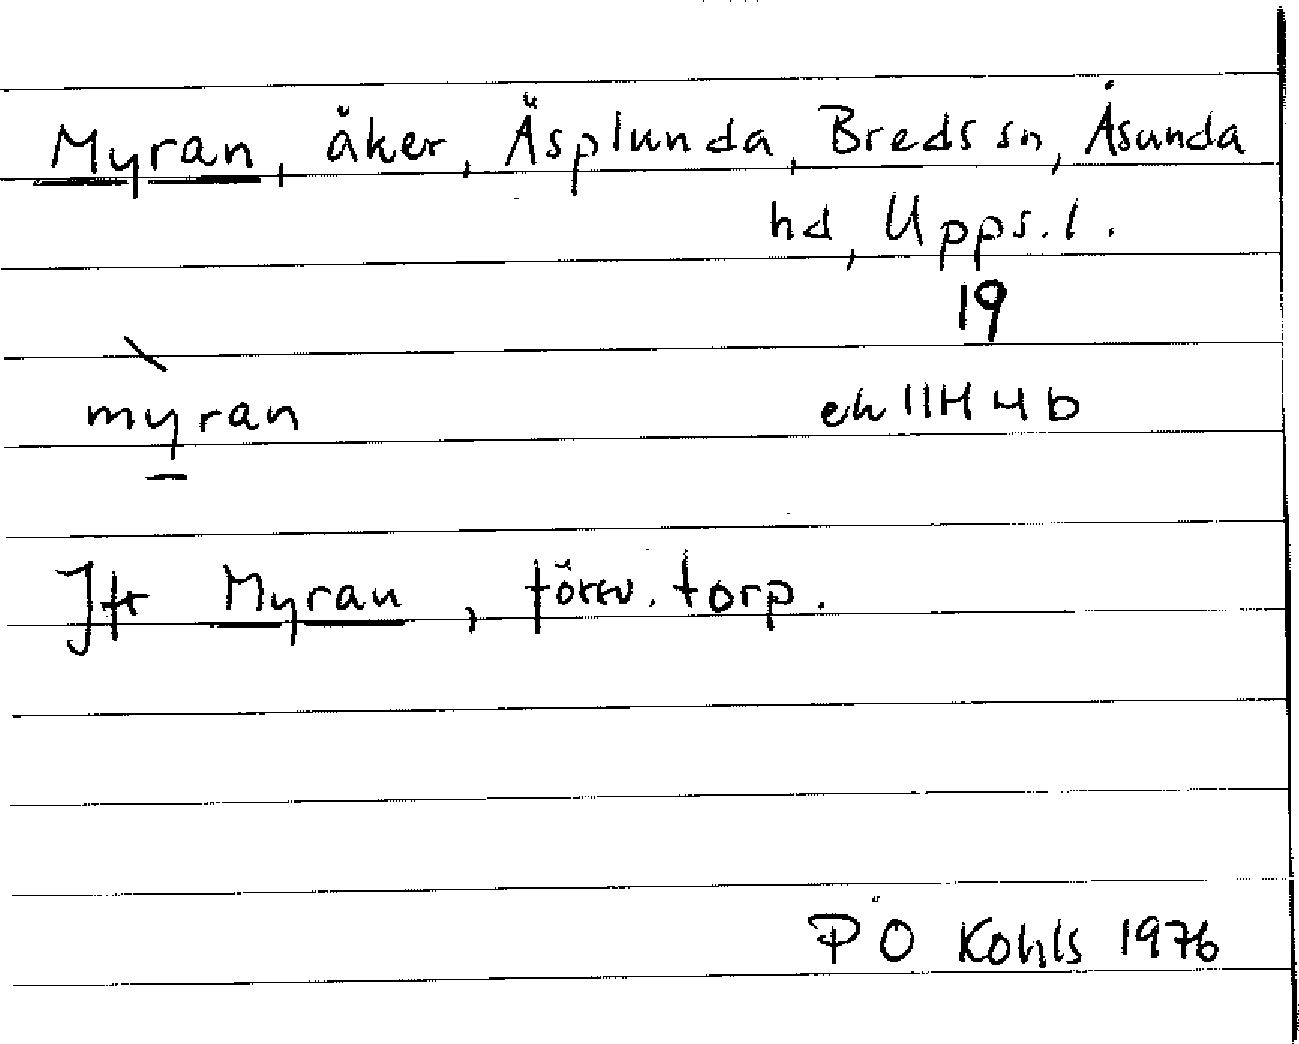 Myran, åker, Äsplunda, Breds sn, Åsunda
hd, Upps. l.
19
myran ek 11H 4b
Jfr Myran, förv. torp.
P Ö Kohls 1976